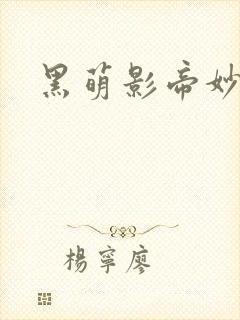 黑萌影帝妙
楊寧廖